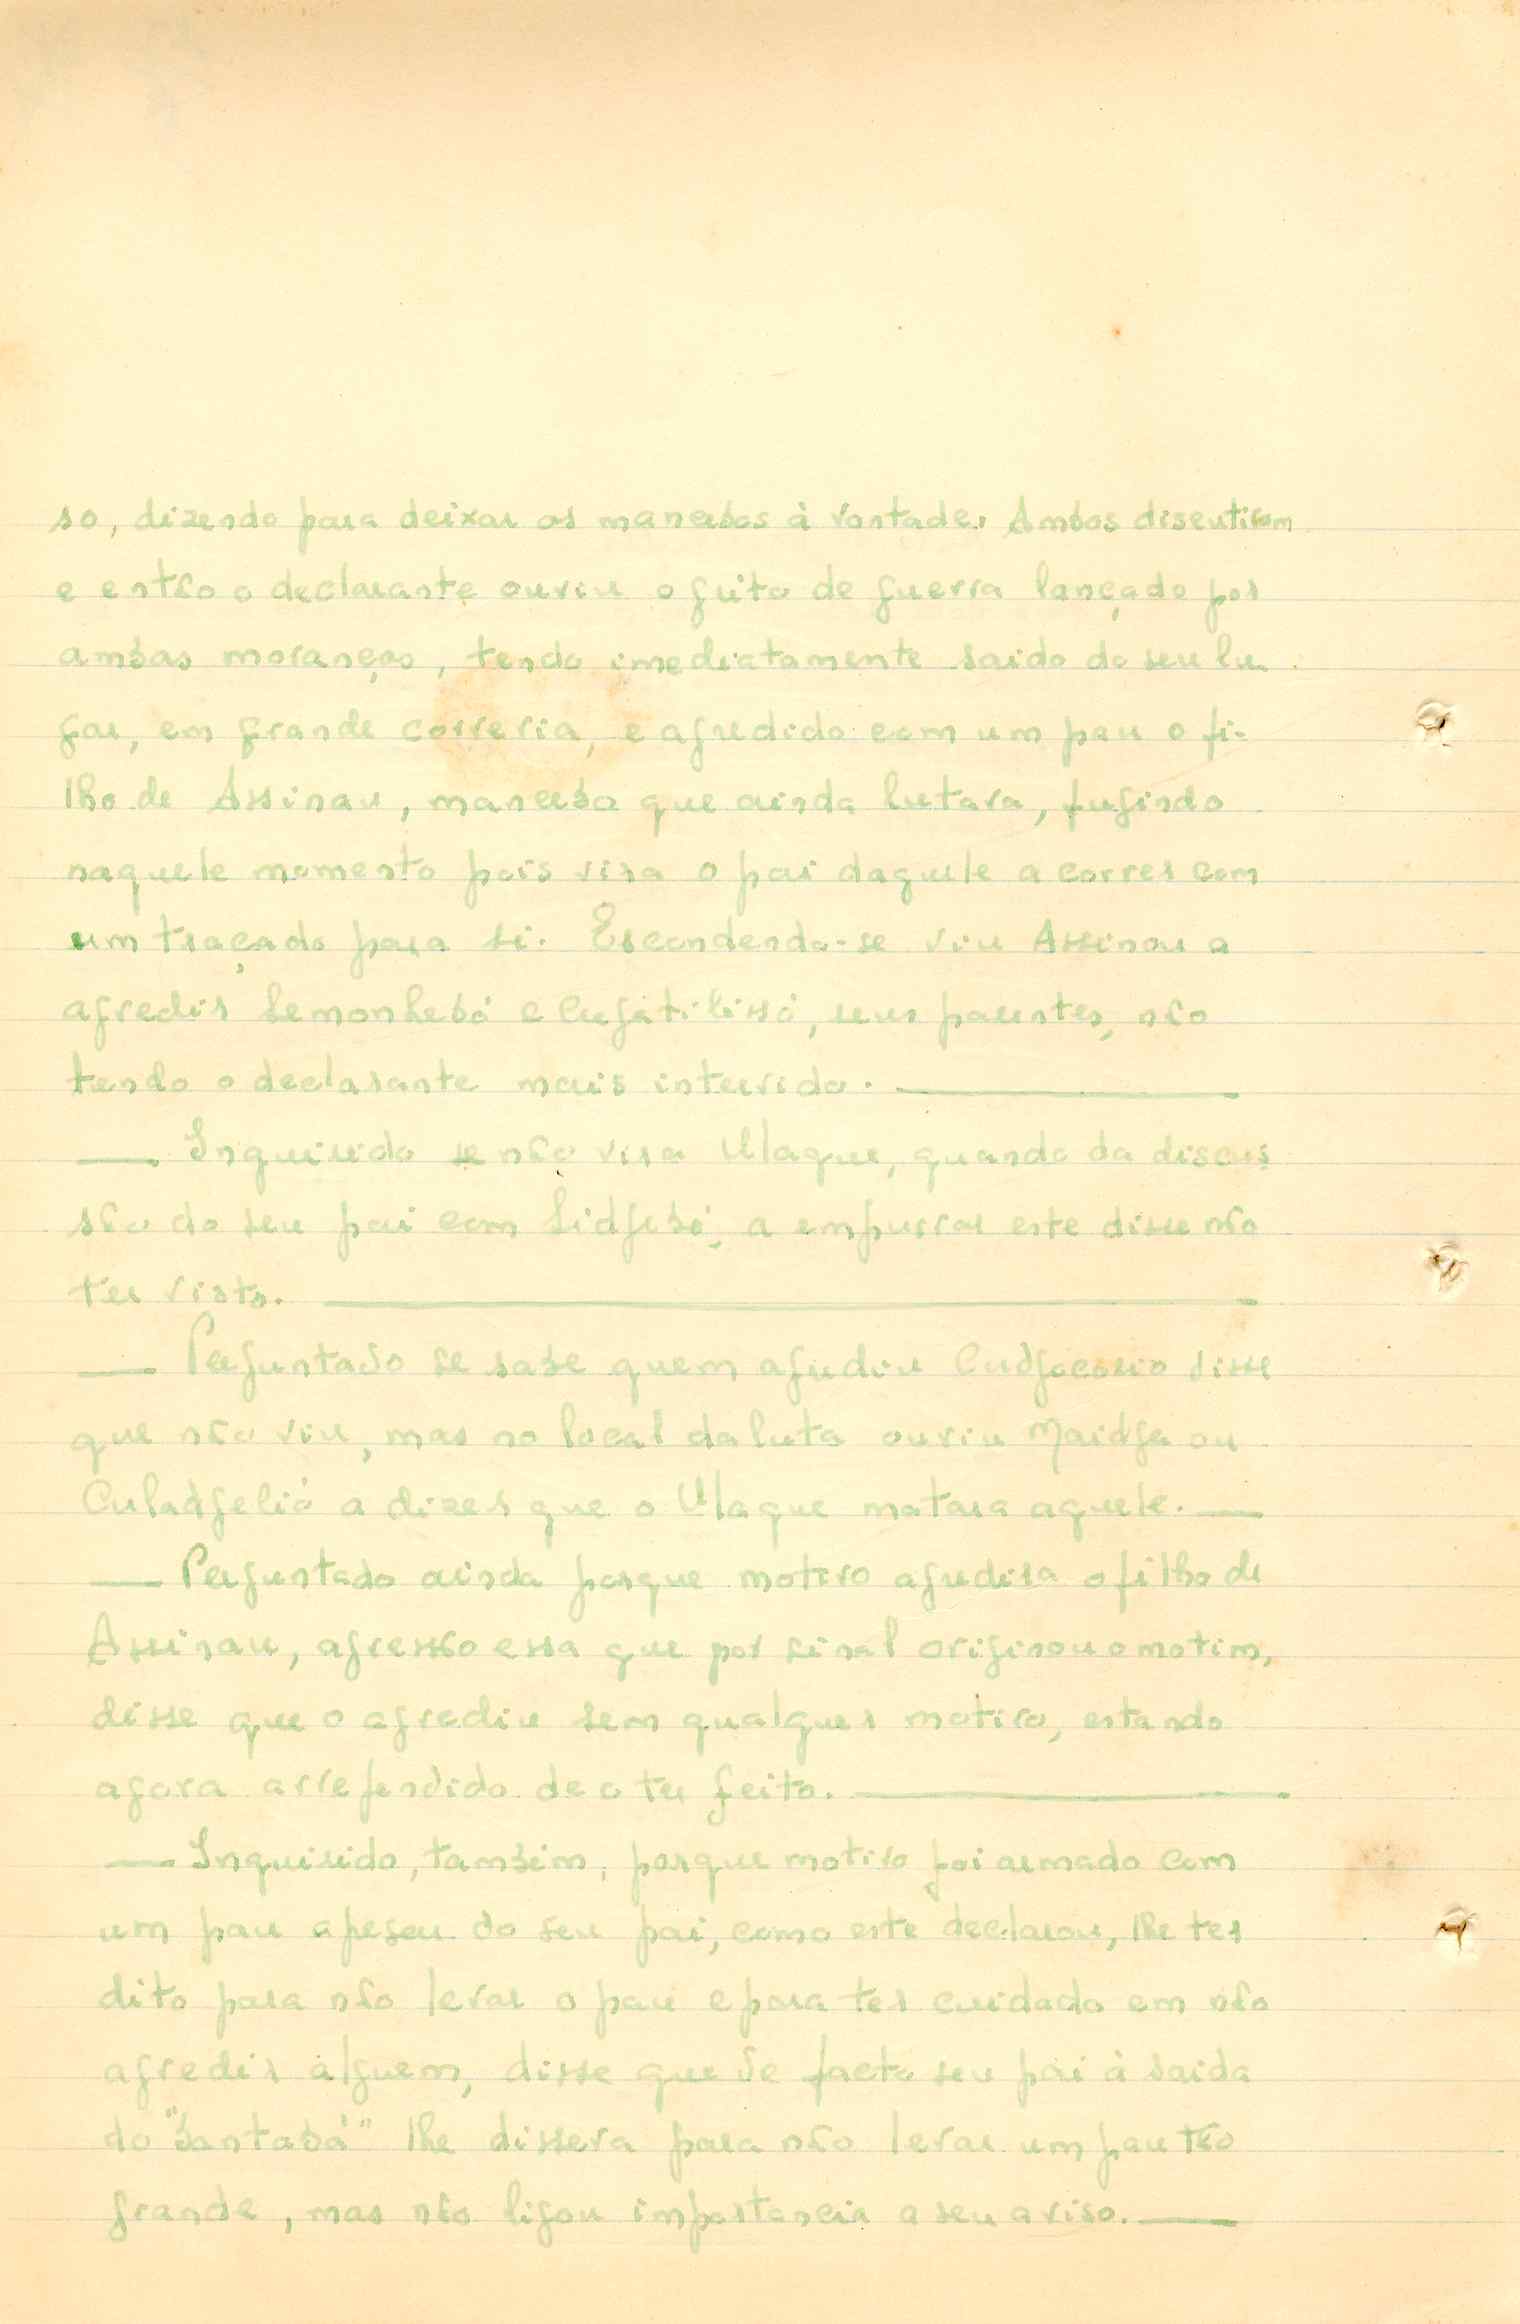 so, dizendo para deixar os mancebos à vontade. Ambos discutiram
e então o declarante ouviu o grito de guerra lançado por
ambas moranças, tendo imediatamente saido do seu lu-
gar, em grande correria, e agredido com um pau o fi-
lho de Assinau, mancebo que ainda lutava, fugindo
naquele momento pois vira o pai daquele a correr com
um traçado para si. Escondendo-se viu Assinau a
agredir Semonhebó e Cugitilissó, seus parentes, não
tendo o declarante mais intervido.
— Inquirido se não vira Ulaque, quando da discus
são do seu pai com Sidjebó, a empurrar este disse não
ter visto.
— Perguntado se sabe quem agrediu Cudjocosio disse
que não viu, mas no local da luta ouviu Maidja ou
Culadjelió a dizer que o Ulaque matara aquele. —
— Perguntado ainda porque motivo agredira o filho de
Assinau, agressão essa que por sinal originou o motim,
disse que o agrediu sem qualquer motivo, estando
agora arrependido de o ter feito.
— Inquirido, também, porque motivo foi armado com
um pau apesar do seu pai, como este declarou, lhe ter
dito para não levar o pau e para ter cuidado em não
agredir alguem, disse que de facto seu pai à saida
do "Santabá" lhe dissera para não levar um pau tão
grande, mas não ligou importancia a seu aviso. —